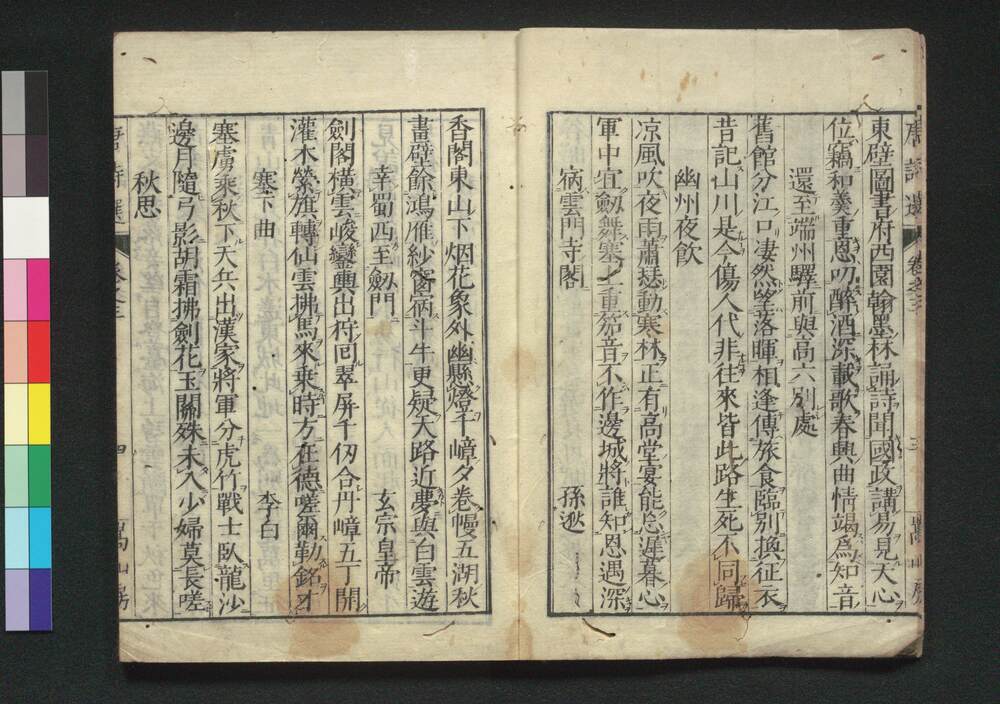 東壁圖書府西園翰墨林誦詩聞國政講易見天心
位竊和羹重恩叨醉酒深載歌春興曲情竭爲知音
還至端州驛前與高六別處
舊館分江口凄然望落暉相逢傳旅食臨別換征衣
昔記山川是今傷人代非往來皆此路生死不同歸
幽州夜飲
凉風吹夜雨蕭瑟動寒林正有高堂宴能忘遲暮心
軍中宜劔舞塞上重笳音不作邊城將誰知恩遇深
宿雲門寺閣 孫逖
香閣東山下烟花象外幽懸燈千嶂夕卷幔五湖秋
畫壁餘鴻雁紗窗宿斗牛更疑天路近夢與白雲遊
幸蜀西至劔門 玄宗皇帝
劍閣橫雲峻鑾輿出狩囘翠屏千仞合丹嶂五丁開
灌木縈旗轉仙雲拂馬來乗時方在德嗟爾勒銘才
塞下曲 李白
塞虜乘秋下天兵出漢家將軍分虎竹戰士臥龍沙
邊月隨弓影胡霜拂劍花玉關殊未入少婦莫長嗟
秋思
唐詩選 卷之三 四